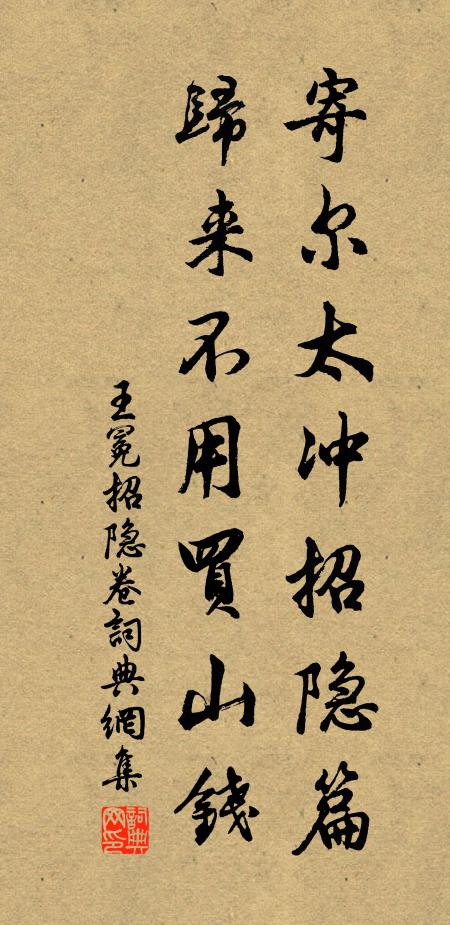 寄尔太冲招隐篇
歸来不用買山錢
王冕招隐卷詞典網集
詞典網印